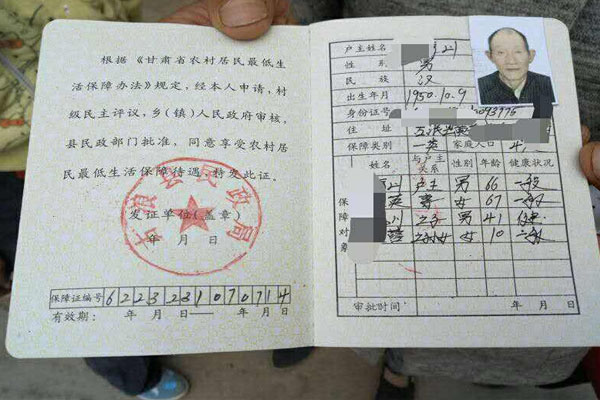 根据《甘肃省农村居民最低生
活保障办法》规定，经本人申请，村
级民主评议，乡（镇）人民政府审核，
县民政部门批准，同意享受农村居
民最低生活保障待遇，特发此证。
发证单位（盖章）
年 月 日
县民政局
保障证编号 6 2 2 3 2 3 1 0 7 0 7 1 4
有效期： 年 月 日—— 年 月 日
户主姓名
性别 男
民族 汉
出生年月 1950.10.9
身份证号 093775
住址
保障类别 一类 家庭人口 4
保障对象
姓名 与户主关系 性别 年龄 健康状况
户主 男 66 一般
妻 女 67 一般
之子 男 41
之孙女 女 10
审批时间 年 月 日